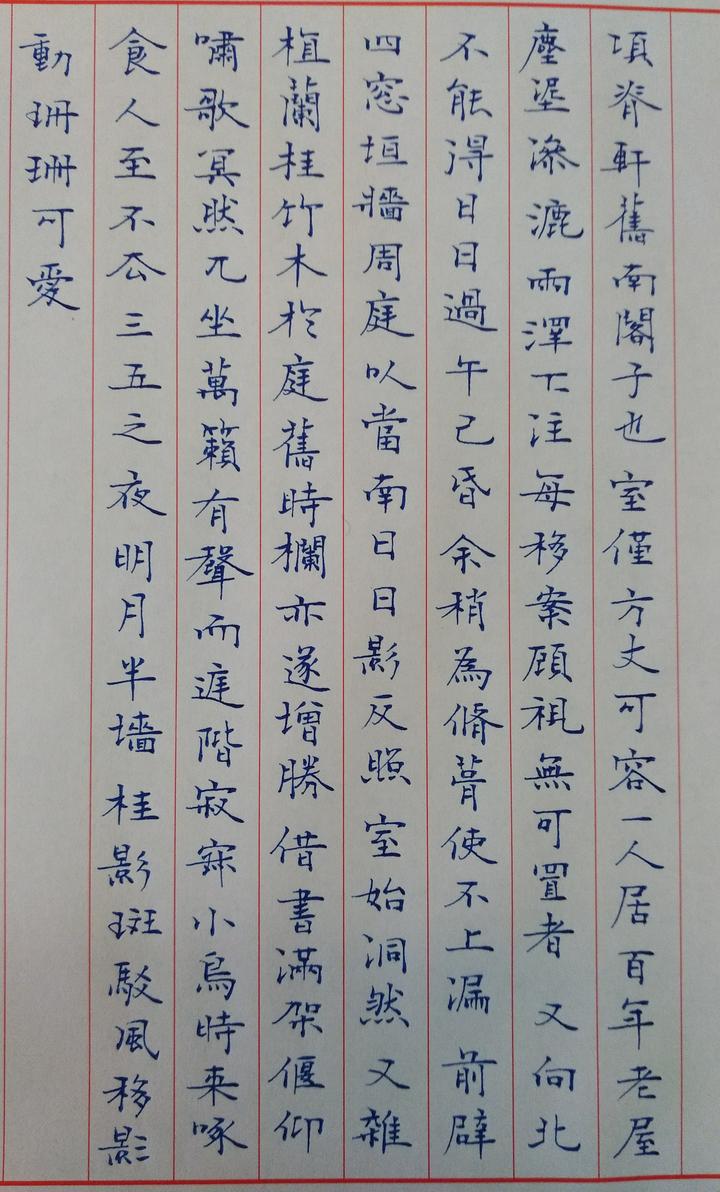 項脊軒舊南閣子也室僅方丈可容一人居百年老屋
塵埿滲漉雨澤下注每移案顧視無可置者又向北
不能得日日過午已昏余稍為脩葺使不上漏前辟
四窓垣牆周庭以當南日日影反照室始洞然又雜
植蘭桂竹木於庭舊時欄亦遂增勝借書滿架偃仰
嘯歌冥然兀坐萬籟有聲而庭階寂寂小鳥時来啄
食人至不去三五之夜明月半墻桂影斑駁風移影
動珊珊可愛